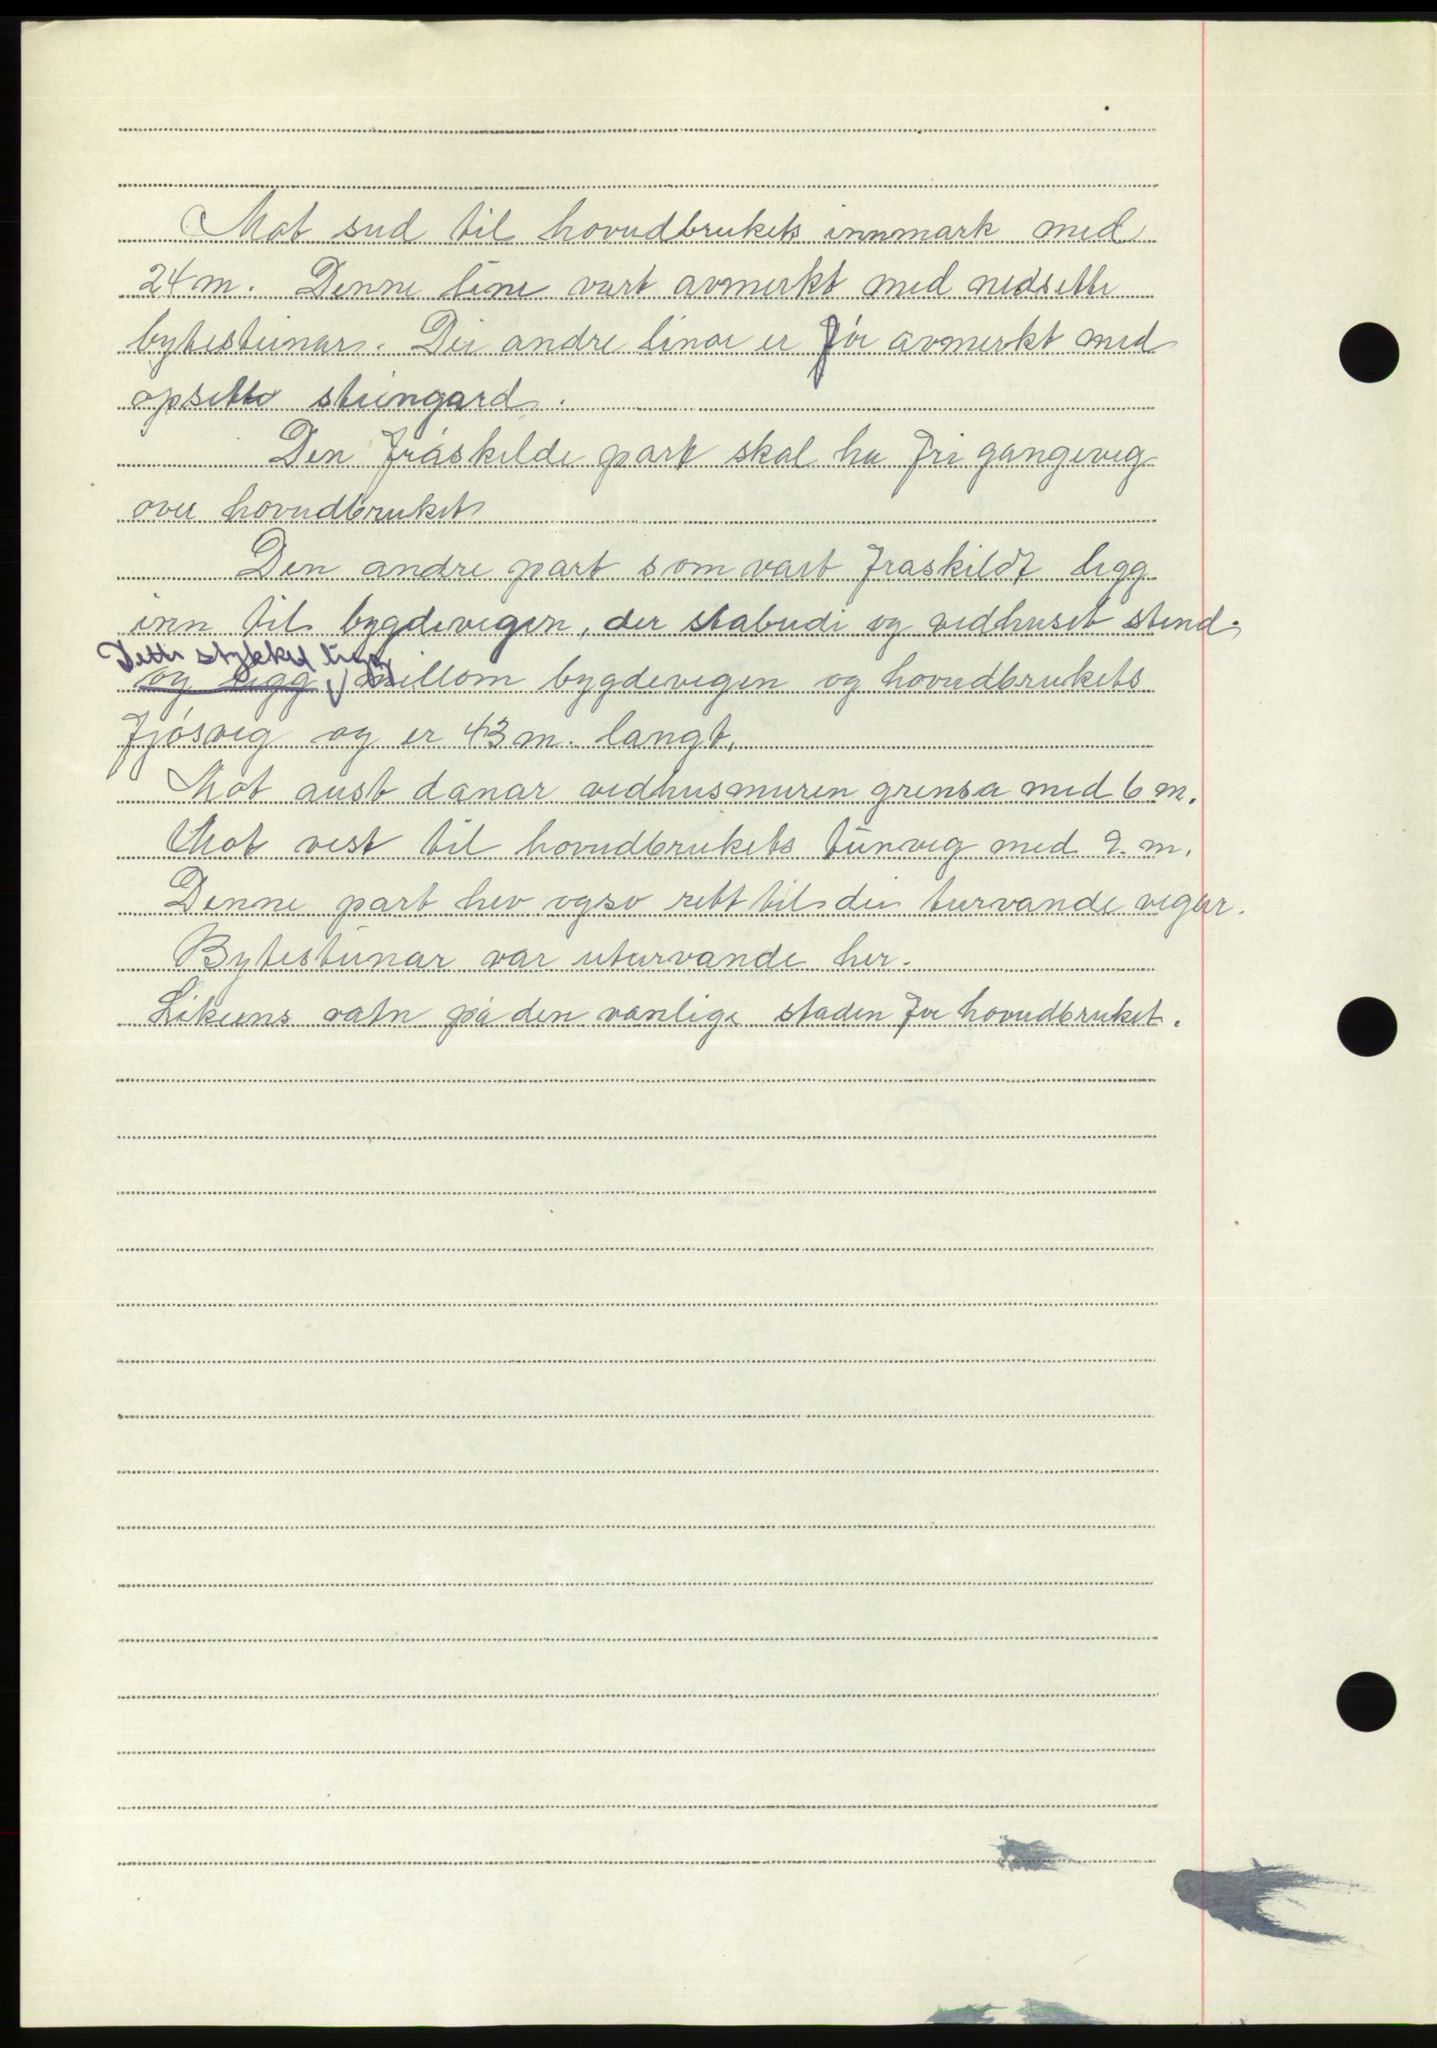 Mot sud til hovudbrukets innmark med
24 m. Denne line vart avmerkt med nedsette
bytesteinar. Dei andre linor er för avmerkt med
opsette steingard.
Den fråskilde part skal ha fri gangeveg
over hovudbruket
Den andre part som vart fraskildt ligg
inn til bygdevegen, der stabudi og vedhuset stend.
Dette stykket ligg
og ligg millom bygdevegen og hovudbrukets
fjösveg og er 43 m. langt.
Mot aust danar vedhusmuren grensa med 6 m.
Mot vest til hovudbrukets tunveg med 9 m.
Denne part hev ogso rett til dei turvande vegar.
Bytesteinar var uturvande her.
Likeens vatn på den vanlige staden for hovudbruket.